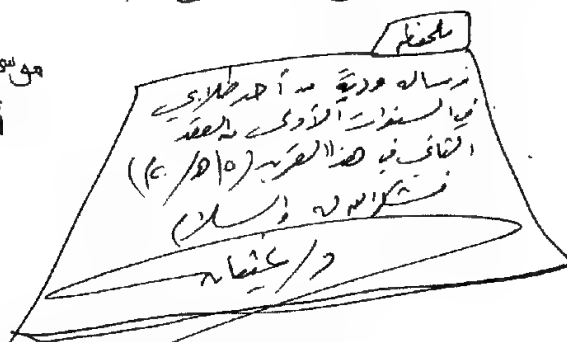 ملحظ
رسالة ودية من أحد طلابي
في السنوات الأولى من العقد
الثاني في هذا القرن (١٥ هـ/
فشكر الله له والسلام
د/ عثمان